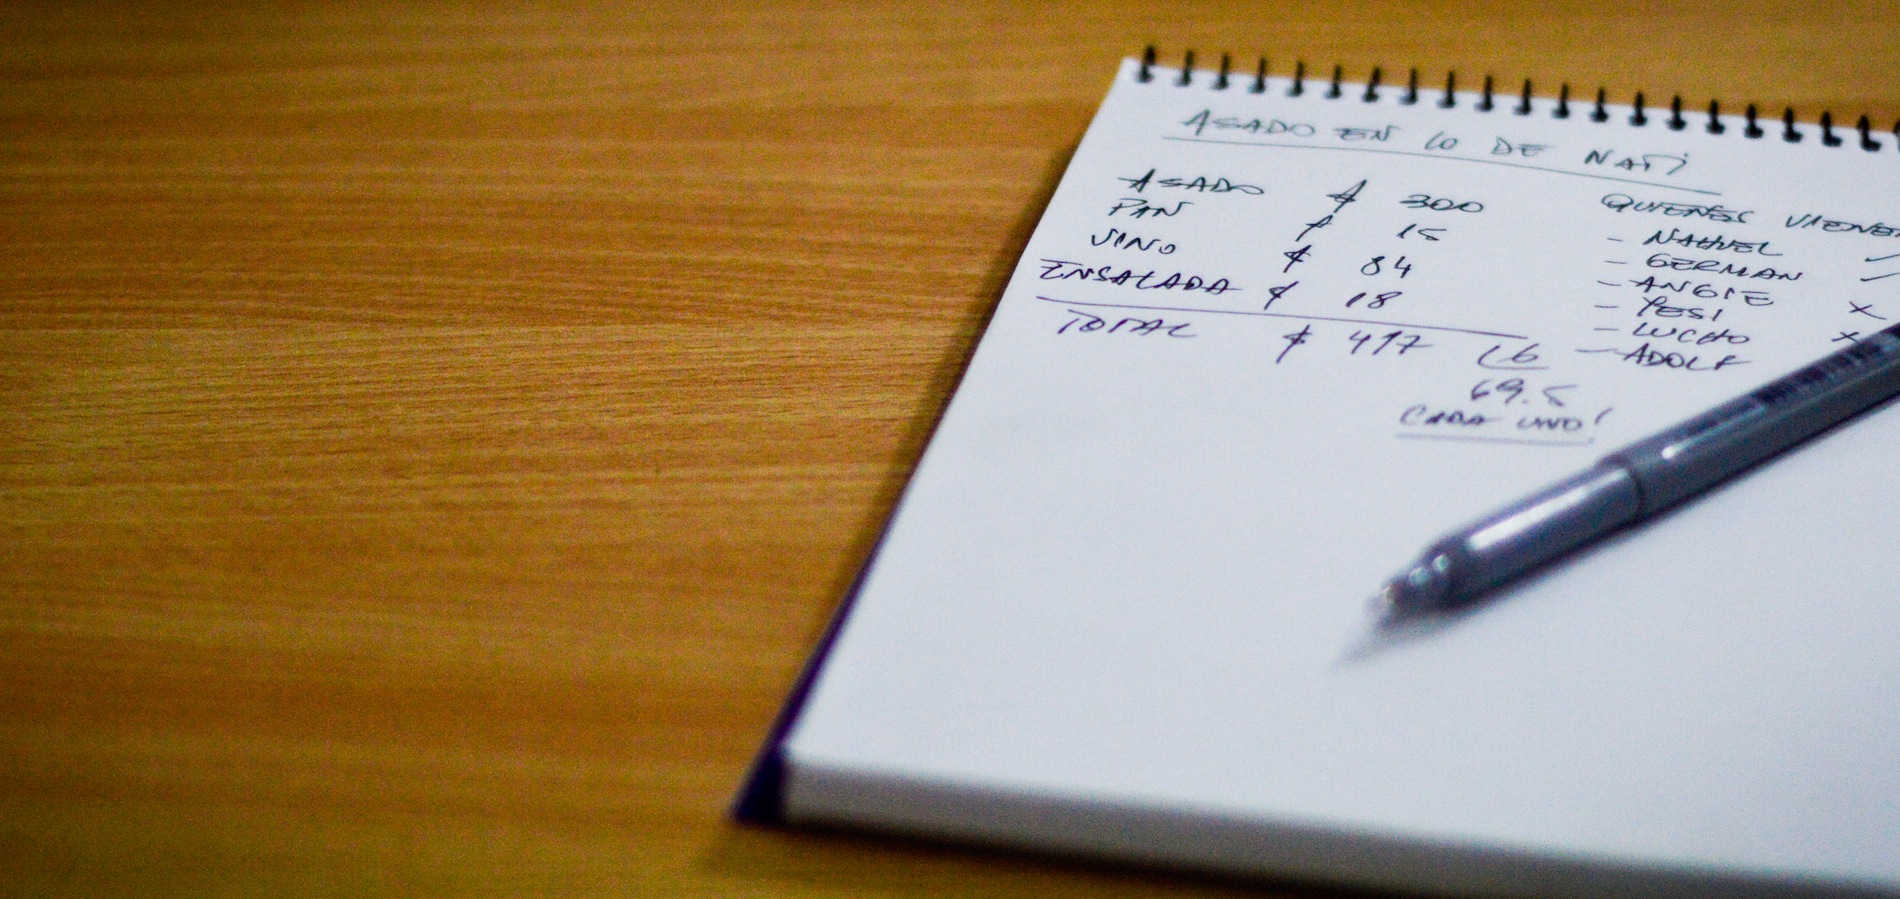 ASADO EN LO DE NATI
ASADO $ 300
PAN $ 15
VINO $ 84
ENSALADA $ 18
TOTAL $ 417 6
69.5
CADA UNO!
QUIENES VIENEN
- NAHUEL ✓
- GERMAN ✓
- ANGIE X
- YESI X
- LUCHO
- ADOLF